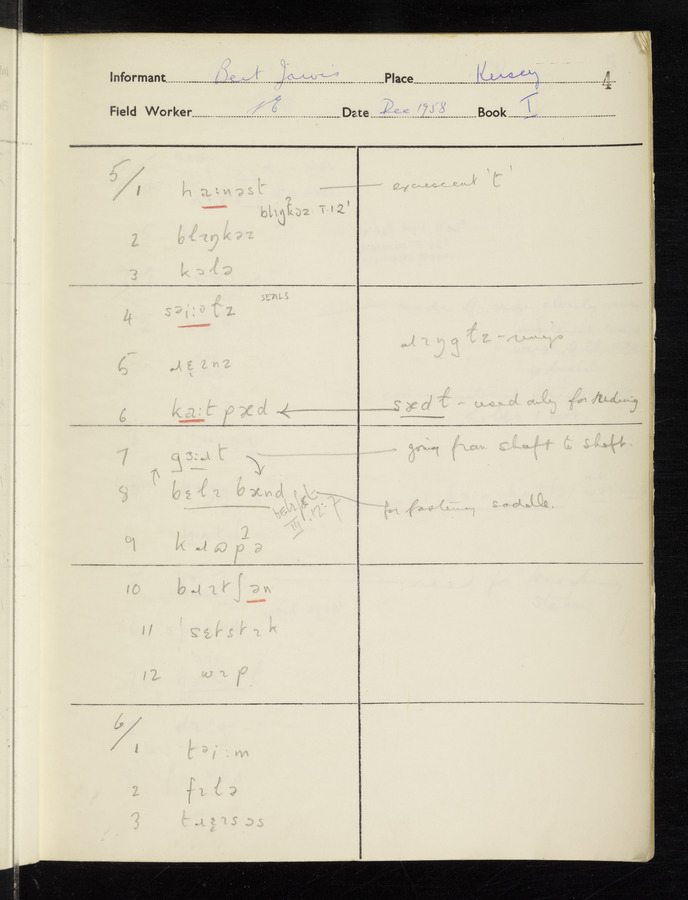 Informant Bert Jarvis Place Kersey 4
Field Worker NE Date Dec 1958 Book I
5/1 haːnəst — excrescent 't'
blɪŋkəz I.12'
2 blɪŋkəz
3 kɒlə
4 səiːətz SEALS
ɹɪŋgtz - reins
5 ɹɛɪnz
6 kaːt pæd ← sædt - used only for riding
7 gɜːɹt — going from shaft to shaft.
8 bɛlɪ bænd for fastening saddle.
III.12.7
9 kɹɒpə
10 bɹɪtʃən
11 'sɛtstɪk
12 wɪp
6/1 təiːm
2 fɪlə
3 tɹɛɪsəs